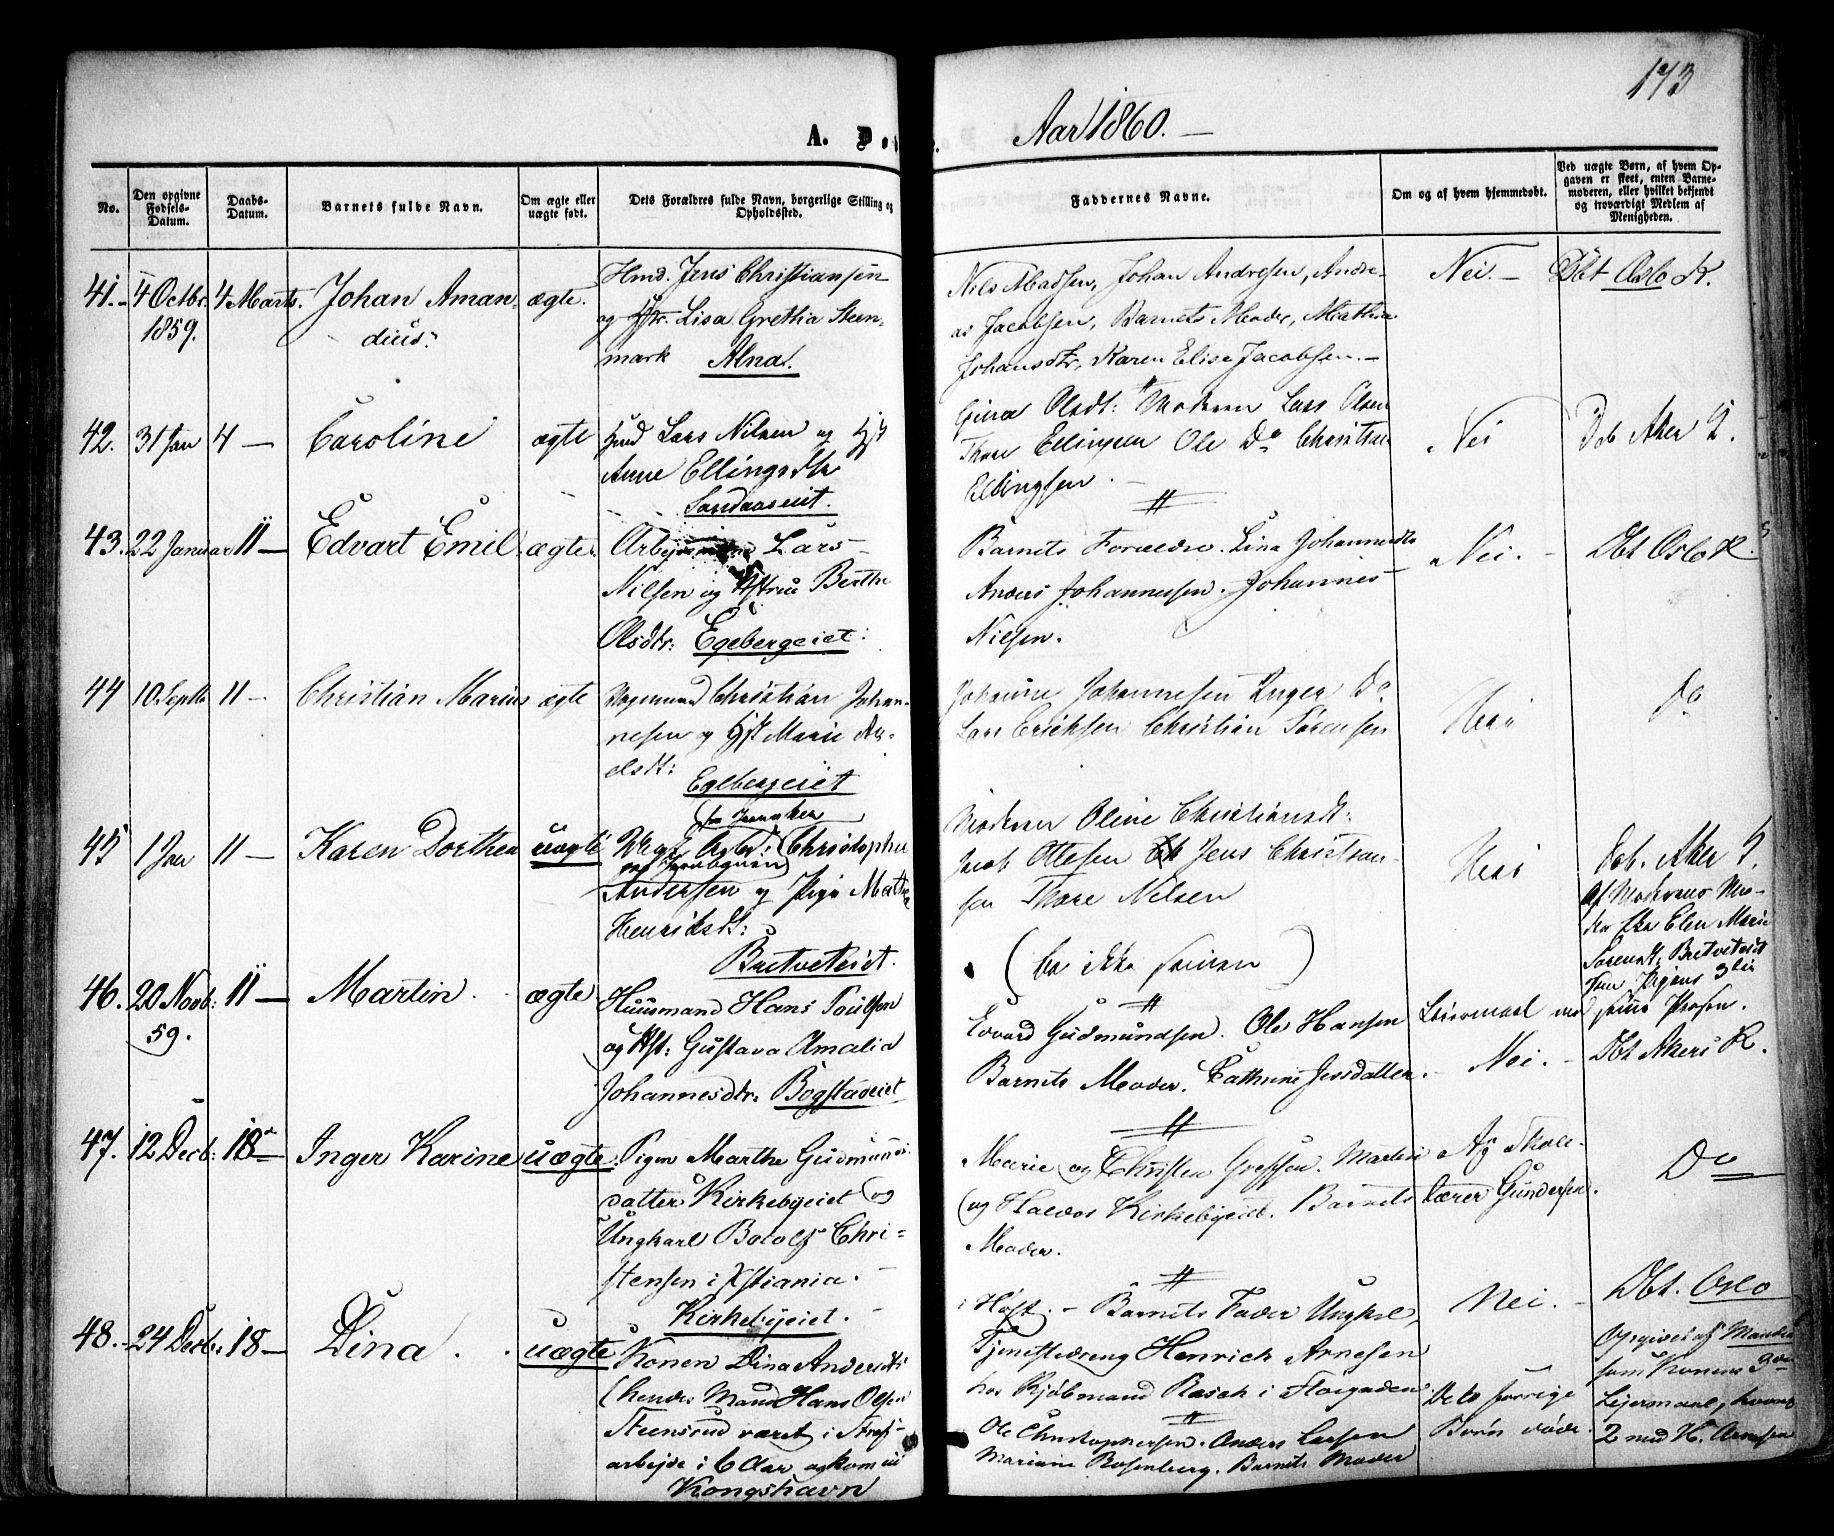 173
A. Do
Aar 1860. —
No.
Den opgivne Fødsels-Datum.
Daabs-Datum.
Barnets fulde Navn.
Om ægte eller uægte født.
Dets Forældres fulde Navn, borgerlige Stilling og Opholdssted.
Faddernes Navne.
Om og af hvem hjemmedøbt.
Ved uægte Børn, af hvem Opgaven er skeet, enten Barnemoderen, eller hvilket bekjendt og troværdigt Medlem af Menigheden.
41. 4 Octbr. 1859. 4 Marts. Johan Amandius. ægte.
Hmd. Jens Christiansen
og Hstr. Lisa Grethia Steen-
mark Alna.
Nils Madsen, Johan Andresen, Andre-
as Jacobsen, Barnets Moder, Mathea
Johansdtr, Karen Elise Jacobsen. —
Nei. — Dbt Oslo K.
42. 31 Jan 4 — Caroline ægte
Hmd Lars Nilsen og Hst
Anne Ellingsdtr
Sandaaseiet.
Gina Olsdt: Moderen Lars Olsen
Thore Ellingsen Ole Do Christian
Ellingsen.
Nei Døb Aker K.
43. 22 Januar 11 — Edvart Emil. ægte.
Arbejdsmand Lars
Nilsen og Hstrue Berthe
Olsdtr: Egebergeiet.
Barnets Forældre. Lina Johannesdtr
Anders Johannesen. Johannes
Nielsen.
Nei. — Dbt Oslo K.
44 10 Septbr 11 — Christian Marius ægte
Christian Johan-
nesen og Hst Marie
elsdt:
Egebergeiet
Johanne Johannesen Inger Do
Lars Ericksen Christian Sørensen
Nei Do
45 1 Jan 11 — Karen Dorthea uægte
Christopher
Andersen og Pige Mathea
Henriksdt:
Bretveteiet.
Moderen Oline Christiansdt:
Jacob Ottesen Jens Christian-
sen Thore Nilsen
Nei Døb. Aker K.
af Moderens Mo-
der Elen Marie
Sørensdt, Bretveteiet
46. 20 Novb: 59. 11 — Martin. ægte
Huusmand Hans Poulsen
og Hst: Gustava Amalia
Johannesdtr. Bogstadeiet
Edvard Gudmundsen. Ole Hansen
Barnets Moder. Cathrine Jensdatter.
Nei. — Dbt Akers K.
47. 12 Decb: 18 — Inger Karine uægte.
Pigen Marthe Gudmunds-
datter Kirkebyeiet og
Ungkarl Botolf Chri-
stensen i Xstiania. —
Kirkebyeiet.
Marie og Christen Grefsen. Martin
og Halvor Kirkebyeiet. Barnets
Moder.
Af Skole-
lærer Gundersen.
Do
48. 24 Decbr. 18 — Dina. uægte
Konen Dina Andersdt:
(hendes Mand Hans Olsen
Steensrud været i Straf-
arbejde i 6 Aar og kom ud
Kongshavn
i Høst. — Barnets Fader Ungkrl,
Tjenestedreng Henrich Arnesen
hos Kjøbmand Rasch i Storgaden
Ole Christophersen. Anders Larsen
Mariane Rosenberg. Barnets Moder
Nei. —
De to forrige
Børn døde.
Dbt. Oslo
Opgivet af Manden
som Konens 3die
Leiermaal, hvoraf
2 med H. Arnesen